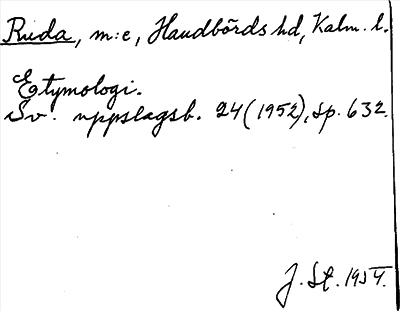 Ruda, m:e, Handbörds hd, Kalm. l.
Etymologi.
Sv. uppslagsb. 24 (1952), sp. 632.
J. St. 1954.